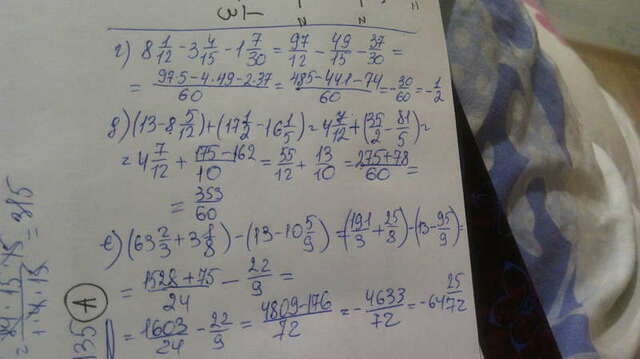 г) 8 1/12 - 3 4/15 - 1 7/30 = 97/12 - 49/15 - 37/30 =
= (97·5-4·49-2·37)/60 = (485-441-74)/60 = -30/60 = -1/2
д) (13-8 5/12)+(17 1/2-16 1/5) = 4 7/12+(35/2-81/5) =
= 4 7/12 + (175-162)/10 = 55/12 + 13/10 = (275+78)/60 =
= 353/60
е) (63 2/3+3 1/8)-(13-10 5/9) = (191/3+25/8)-(13-95/9) =
= (1528+75)/24 - 22/9 =
= 1603/24 - 22/9 = (4809-176)/72 = -4633/72 = -64 25/72
= 315
135 A